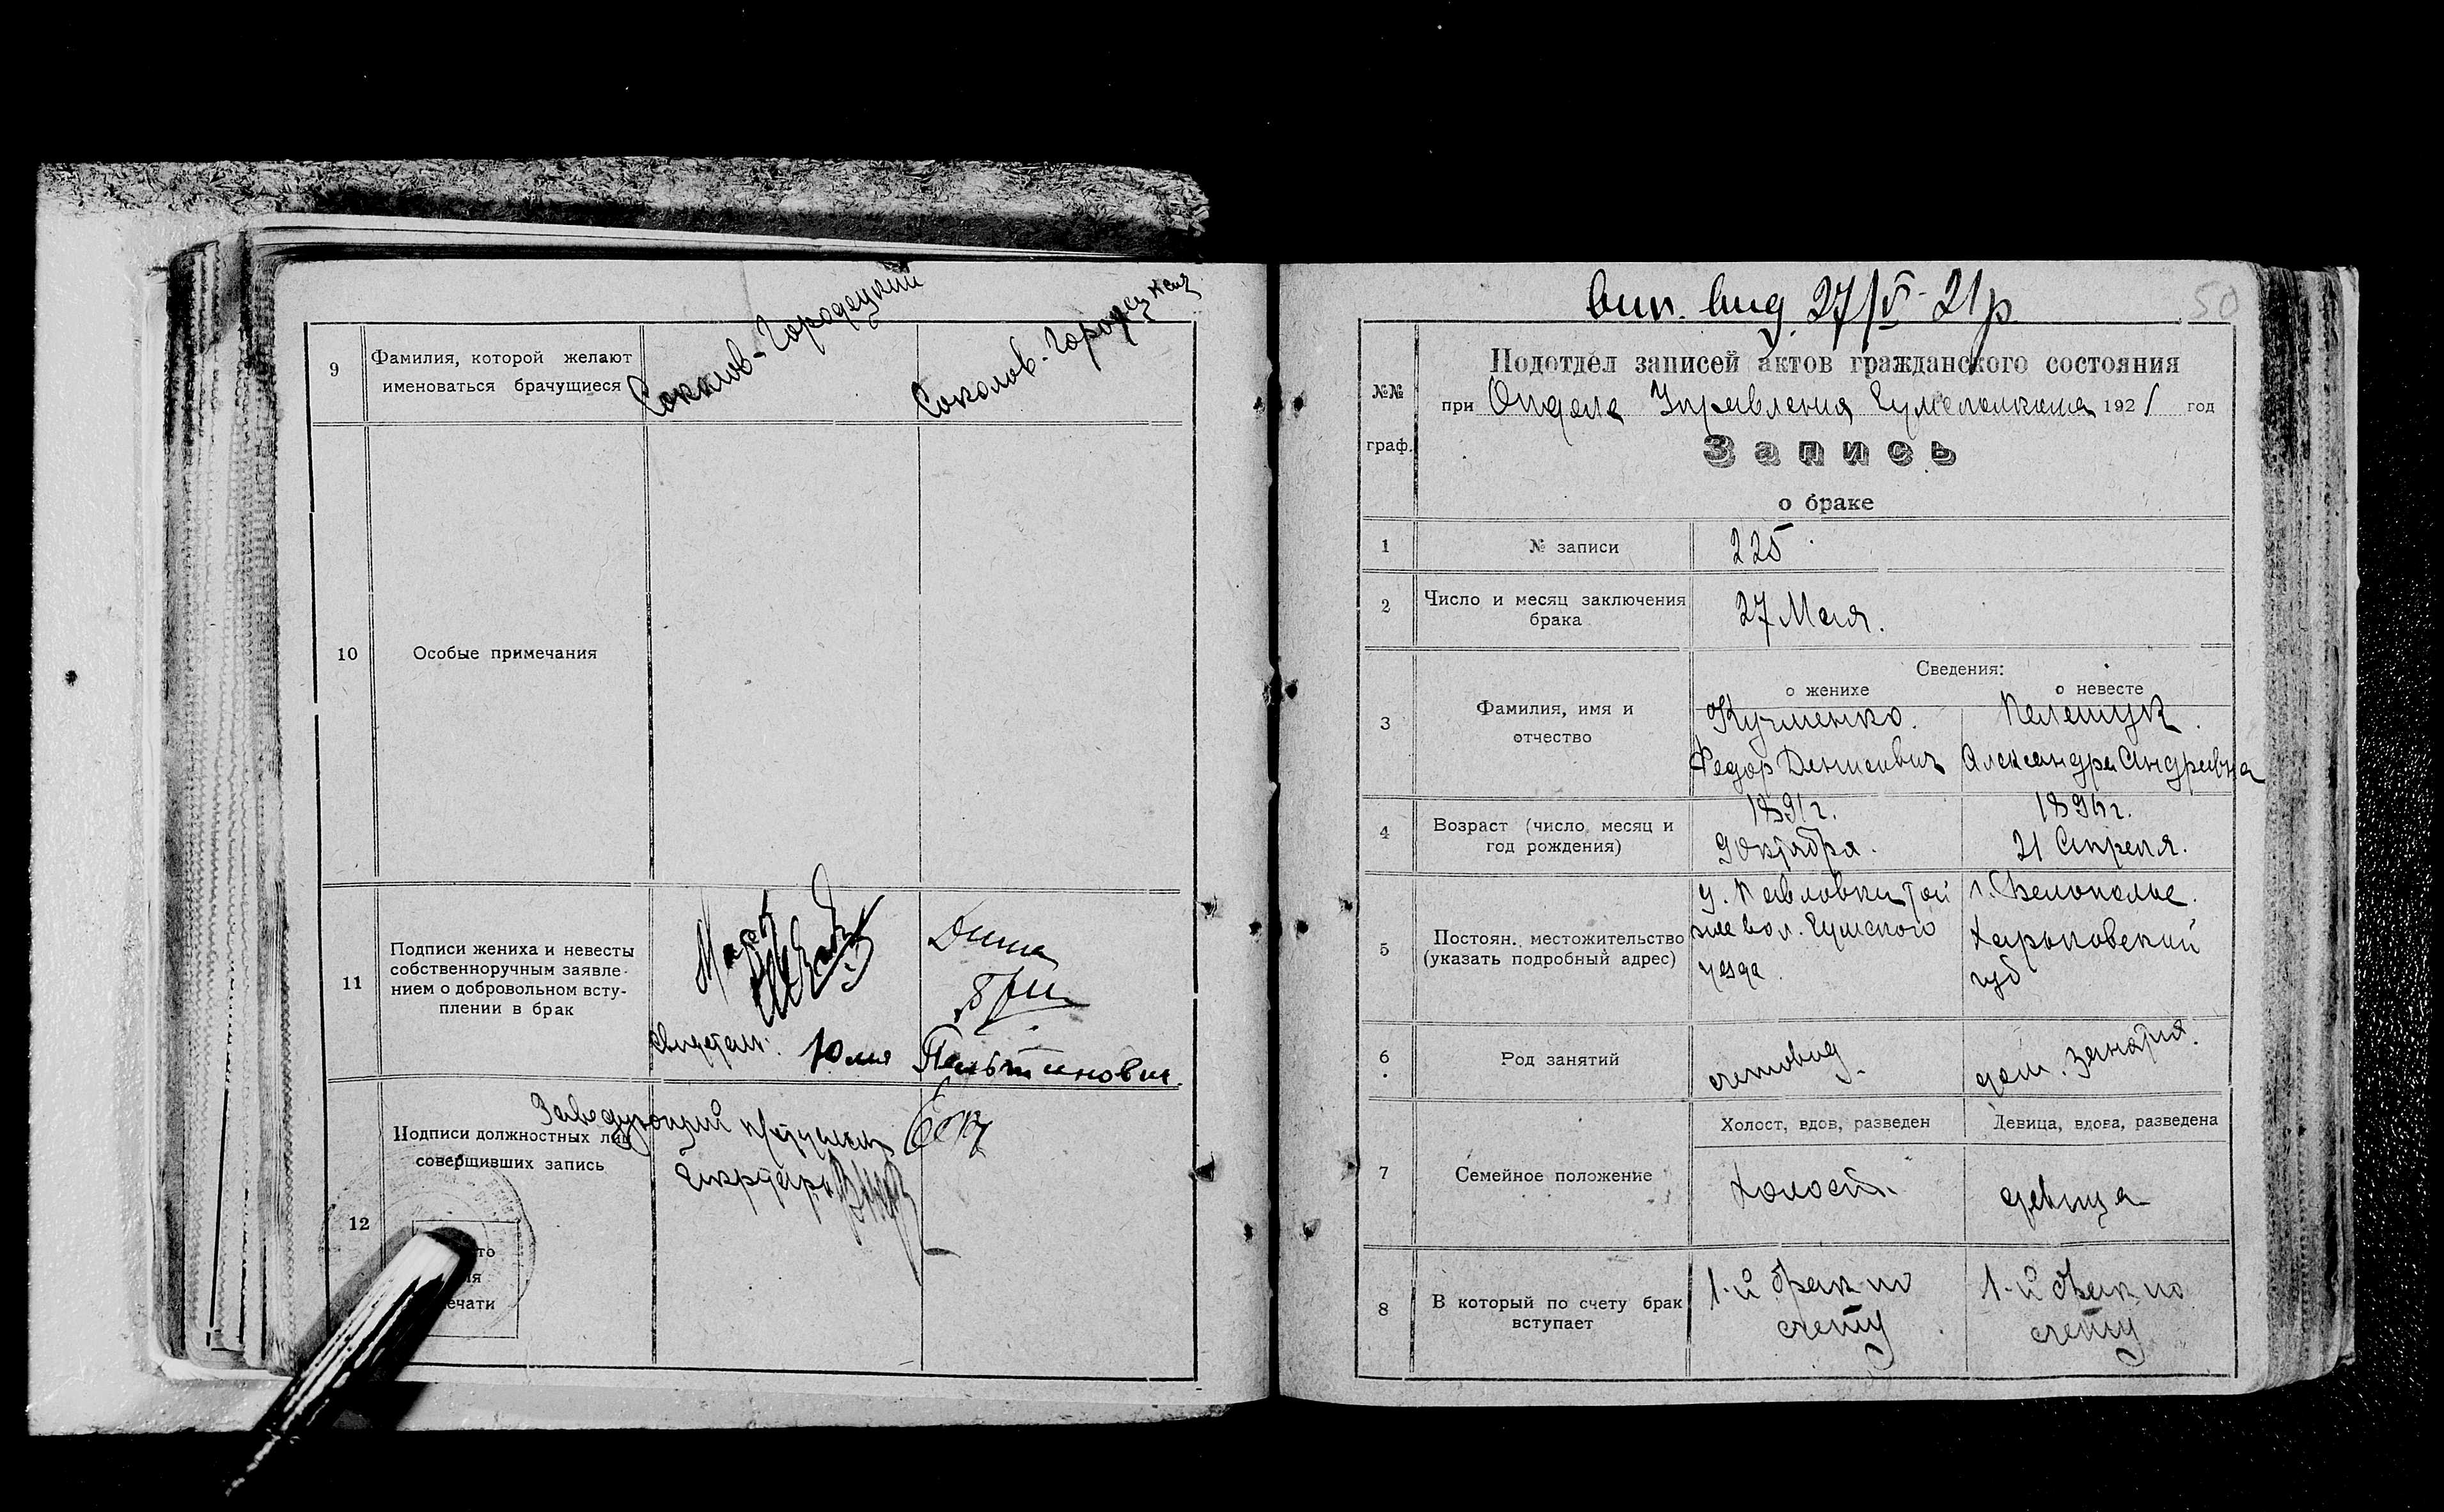 9
Фамилия, которой желают
именоваться брачущиеся
Соколов-Городецкий
Соколов-Городецкая
10
Особые примечания
11
Подписи жениха и невесты
собственноручным заявле-
нием о добровольном всту-
плении в брак
Дина
Юлия
Заведующий
Подписи должностных лиц
совершивших запись
Секретарь
12
50
вип. вид. 27/V-21р
№№
граф.
Подотдел записей актов гражданского состояния
при Отделе Управления 1921 год
Запись
о браке
1
№ записи
225
2
Число и месяц заключения
брака
27 Мая.
3
Фамилия, имя и
отчество
Сведения:
о женихе
о невесте
Кучменко.
Федор Денисович
Пелещук.
Александра Андреевна
4
Возраст (число, месяц и
год рождения)
1891г.
9 октября.
21 Апреля.
5
Постоян. местожительство
(указать подробный адрес)
д. Павловки той
же вол. Сумского
уезда.
г. Белополье.
Харьковский
губ
6
Род занятий
счетовод.
дом. занятия.
7
Семейное положение
Холост, вдов, разведен
Девица, вдова, разведена
холост.
девица
8
В который по счету брак
вступает
1-й брак по
счету
1-й брак по
счету